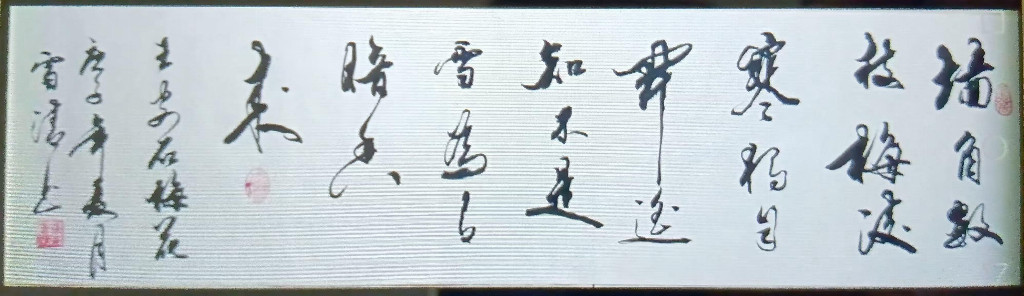 墙角数
枝梅凌
寒独自
開遥
知不是
雪為有
暗香
来
王安石梅花
庚子年夏月
雪